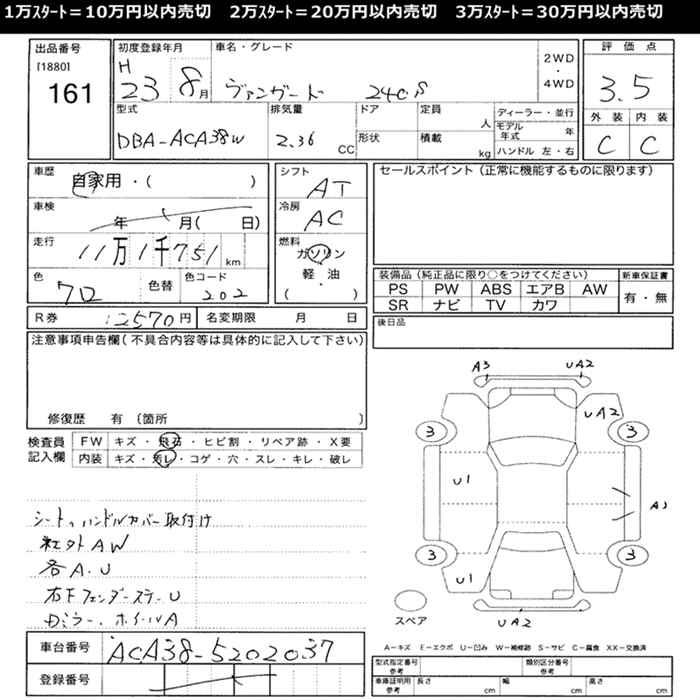 1万ｽﾀｰﾄ＝10万円以内売切　2万ｽﾀｰﾄ＝20万円以内売切　3万ｽﾀｰﾄ＝30万円以内売切
出品番号
[1880]
161
初度登録年月
H 23 8月
車名・グレード
ヴァンガード 240S
2WD
・
4WD
評価点
3.5
外装 内装
C C
型式
DBA-ACA38W
排気量
2.36 CC
ドア
定員 人
形状
積載 kg
ディーラー・並行
モデル年式 年
ハンドル 左・右
車歴
自家用・( )
車検
年 月( 日)
走行
11万1千751km
色
クロ
色替
色コード
202
シフト
AT
冷房
AC
燃料
ガソリン
軽・油
( )
セールスポイント（正常に機能するものに限ります）
装備品（純正品に限り○をつけてください）
PS PW ABS エアB AW
SR ナビ TV カワ
新車保証書
有・無
R券 12570円
名変期限 月 日
後日品
注意事項申告欄(不具合内容等は具体的に記入して下さい)
修復歴 有 〔箇所 〕
検査員
記入欄
FW キズ・飛石・ヒビ割・リペア跡・X要
内装 キズ・汚レ・コゲ・穴・スレ・キレ・破レ
シート、ハンドルカバー取付け
社外AW
各A.U
右Fフェンダーステー U
ドミラー、ホイールA
A3 UA2
UA2
3 3
U1
A1
3 3
U1
UA2
スペア
A－キズ E－エクボ U－凹み W－補修跡 S－サビ C－腐食 XX－交換済
車台番号 ACA38-5202037
登録番号
型式指定番号
参考
類別区分番号
参考
車庫証明用
参考
長さ cm 幅 cm 高さ cm